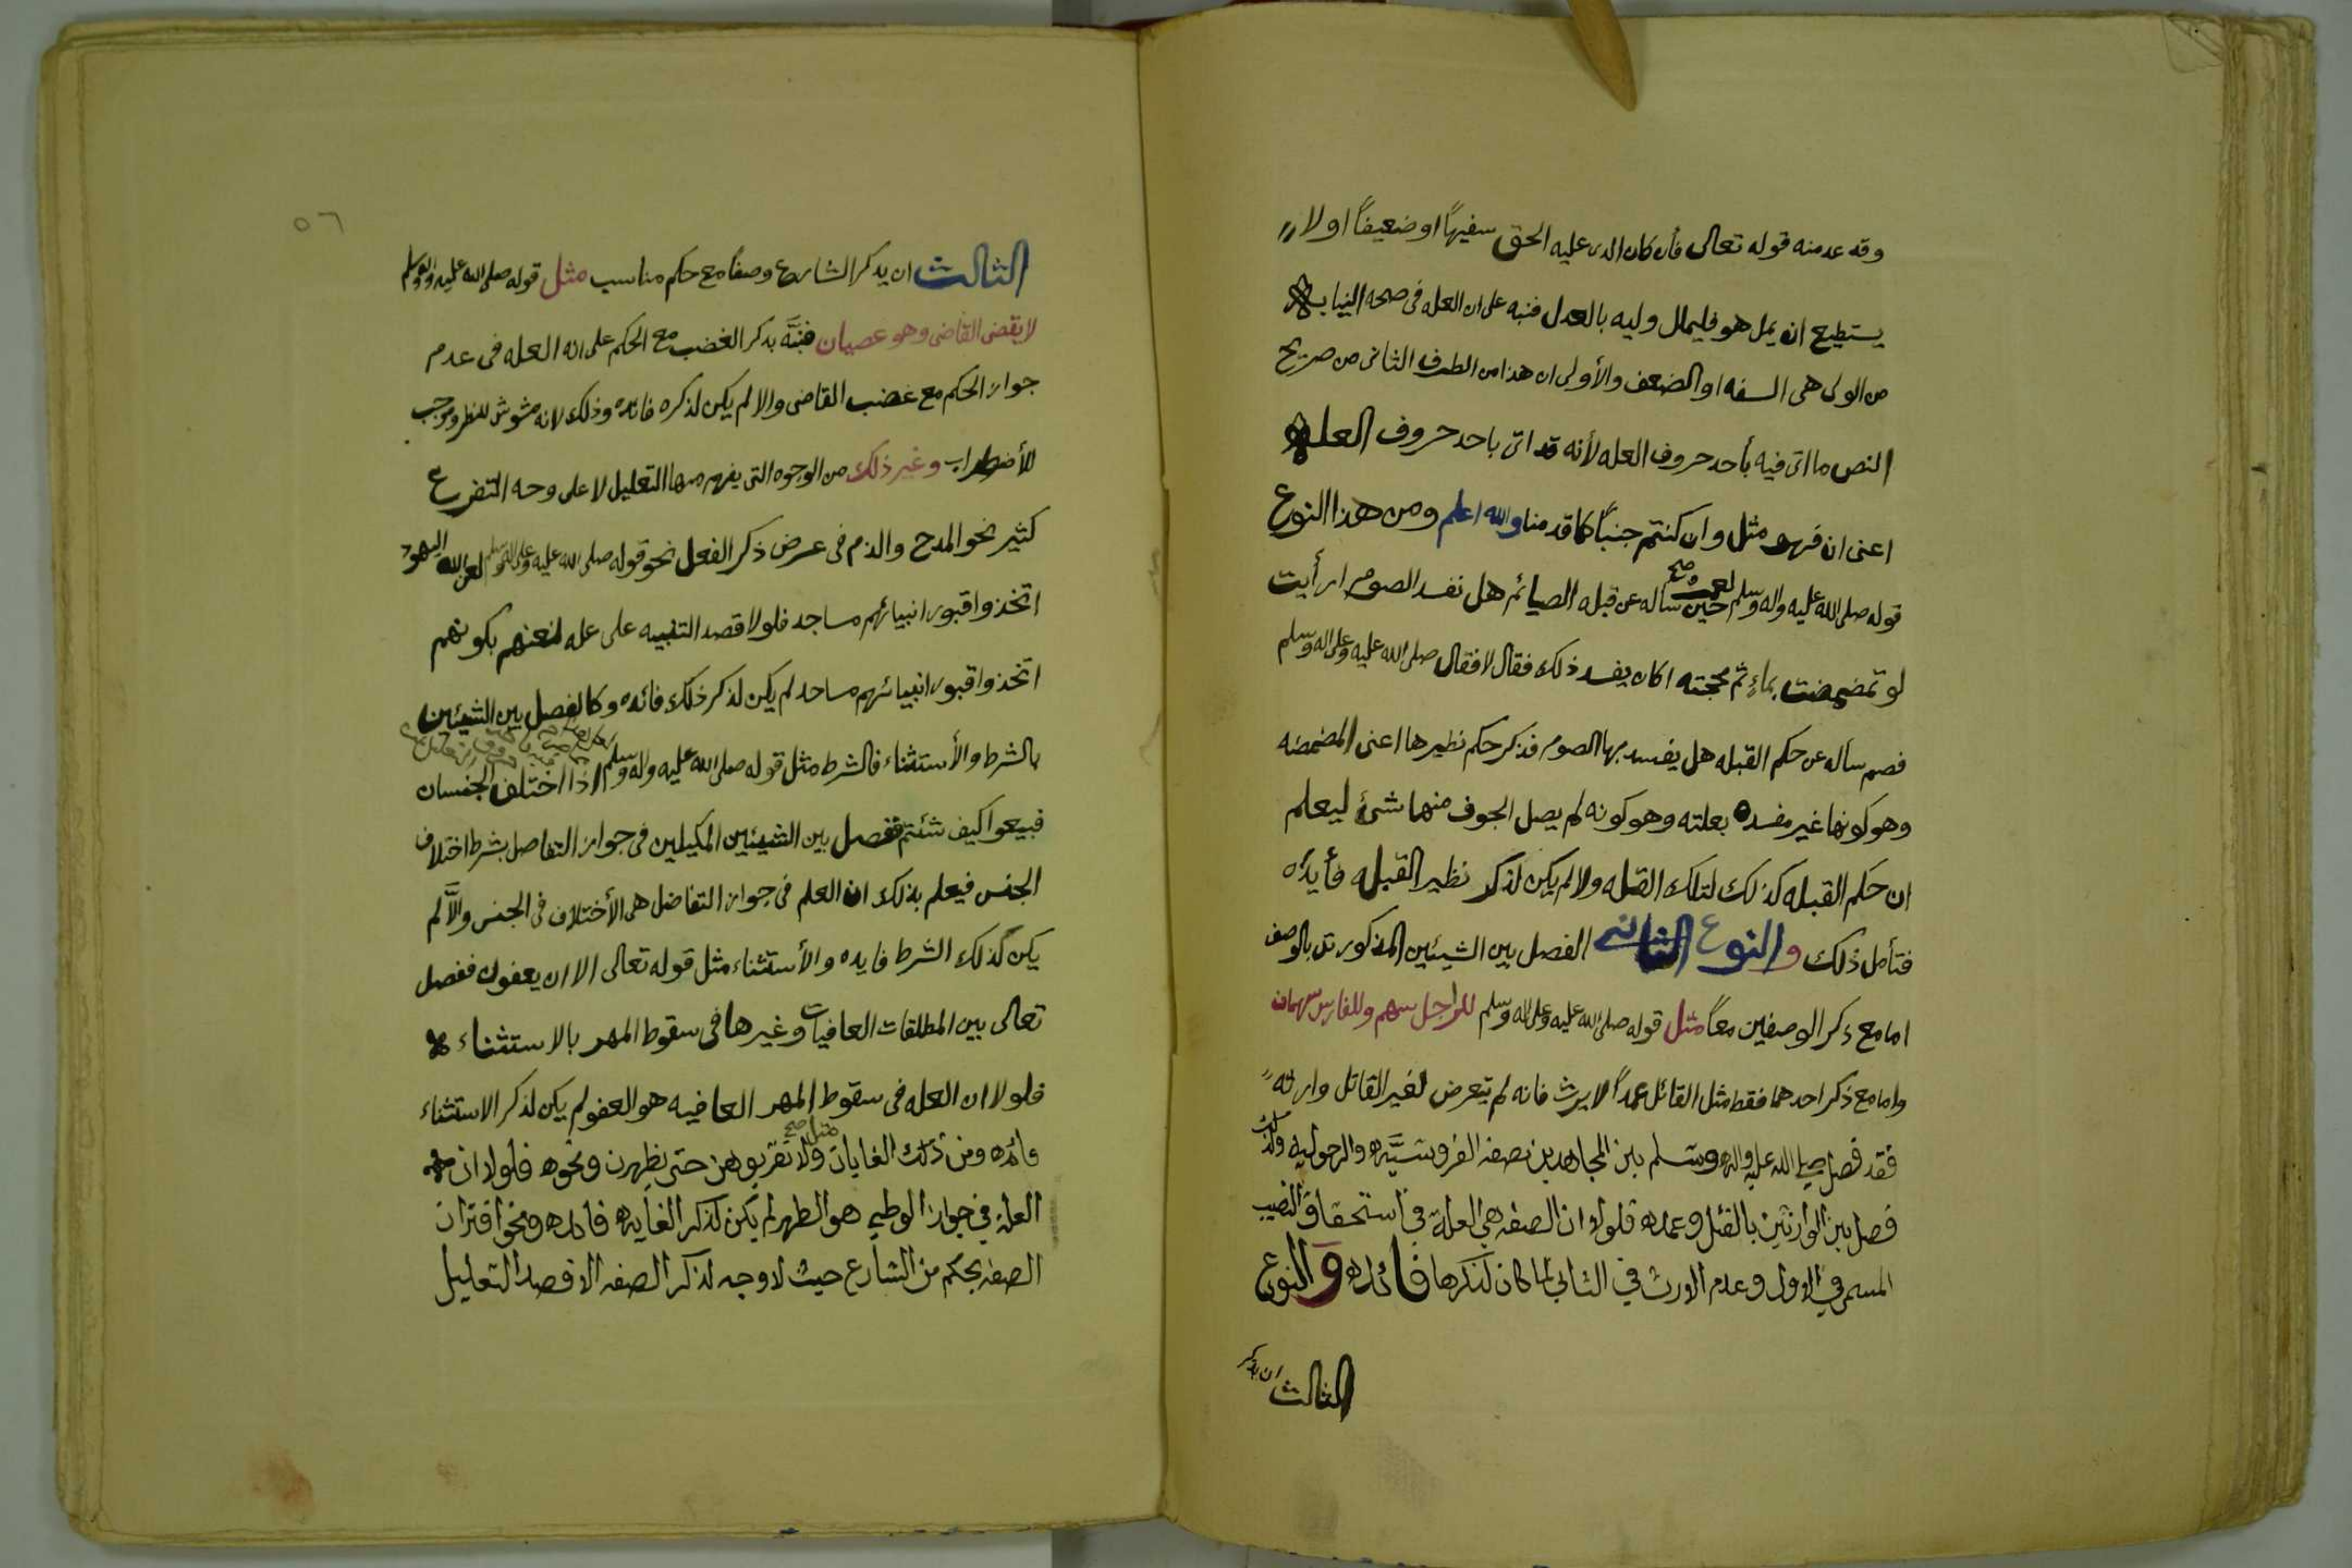 وقد عد منه قوله تعالى فان كان الذى عليه الحق سفيهًا او ضعيفًا او لا
يستطيع ان يمل هو فليملل وليه بالعدل فنبه على ان العله فى صحه النيابه
من الولى هى السفه او الضعف والأولى ان هذا من الطرف الثانى من صريح
النص ما اتى فيه بأحد حروف العله لأنه قد اتى باحد حروف العله
اعنى ان فهو مثل وان كنتم جنبًا كما قدمنا والله اعلم ومن هذا النوع
قوله صلى الله عليه واله وسلم لعمر صح حين سأله عن قبله الصيائم هل تفسد الصوم ارأيت
لو تمضمضت بماءٍ ثم مججته اكان يفسد ذلك فقال لا فقال صلى الله عليه وعلى اله وسلم
فصم سأله عن حكم القبله هل يفسد بها الصوم فذكر حكم نظيرها اعنى المضمضه
وهو كونها غير مفسده بعلته وهو كونه لم يصل الجوف منها شئ ليعلم
ان حكم القبله كذلك لتلك العله والا لم يكن لذكر نظير القبله فأيده
فتأمل ذلك والنوع الثانى الفصل بين الشيئين المذكورتن بالوصف
اما مع ذكر الوصفين معًا مثل قوله صلى الله عليه وعلى اله وسلم للراجل سهم وللفارس سهمان
واما مع ذكر احدهما فقط مثل القاتل عمدًا لا يرث فانه لم يتعرض لغير القاتل وارثه
فقد فصل صلى الله عليه واله وسلم بين المجاهدين بصفه الفروسيَّه والرجوليه وكذلك
فصل بين الوارثين بالقتل وعدمه فلولا ان الصفه هى العلة فى استحقاق النصيب
المسمى فى الاول وعدم الارث فى الثانى لما كان لذكرها فائده والنوع
الثالث ان يذكر
٥٦
الثالث ان يذكر الشارع وصفًا مع حكم مناسب مثل قوله صلى الله عليه واله وسلم
لا يقضى القاضى وهو عصبان فنبَّه بذكر الغضب مع الحكم على انه العله فى عدم
جواز الحكم مع غضب القاضى والا لم يكن لذكره فائده وذلك لانه مشوش للنظر وموجب
للأضطراب وغير ذلك من الوجوه التى يفهم منها التعليل لا على وجه التفرع
كثير نحو المدح والذم فى عرض ذكر الفعل نحو قوله صلى الله عليه وعلى اله وسلم لعن الله اليهود
اتخذوا قبور انبيائهم مساجد فلولا قصد التنبيه على عله لعنهم بكونهم
اتخذوا قبور انبيائهم مساجد لم يكن لذكر ذلك فائده وكالفصل بين الشيئين
بالشرط والأستثناء فالشرط مثل قوله صلى الله عليه واله وسلم اذا اختلف الجنسان
فبيعوا كيف شئتم ففصل بين الشيئين المكيلين فى جواز التفاصل بشرط اختلاف
الجنس فيعلم بذلك ان العلم فى جواز التفاضل هى الأختلاف فى الجنس والاَّ لم
يكن لذلك الشرط فايده والأستثناء مثل قوله تعالى الا ان يعفون ففصل
تعالى بين المطلقات العافيات وغيرها فى سقوط المهر بالاستثناء
فلولا ان العله فى سقوط المهر العافيه هو العفو لم يكن لذكر الاستثناء
فائده ومن ذلك الغايات مثل صح ولا تقربوهن حتى يطهرن ونحوه فلولا ان
العلة فى جواز الوطى هو الطهر لم يكن لذكر الغايه فائده ونحو اقتران
الصفه بحكم من الشارع حيث لا وجه لذكر الصفه الا قصد التعليل